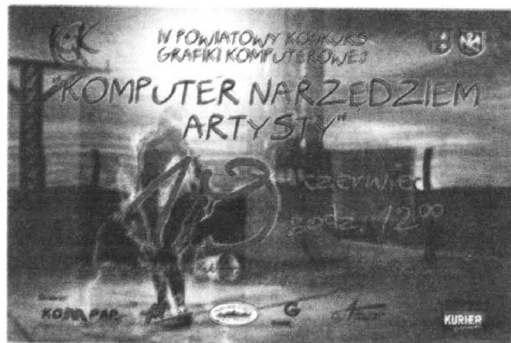 IV POWIATOWY KONKURS
GRAFIKI KOMPUTEROWEJ
"KOMPUTER NARZĘDZIEM
ARTYSTY"
13 czerwiec
godz. 12⁰⁰
G
KURIER